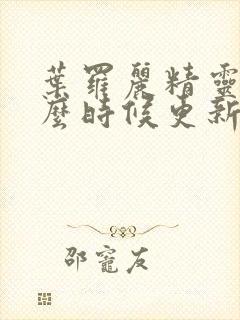 葉羅麗精靈
麼時候更新
邵寵友